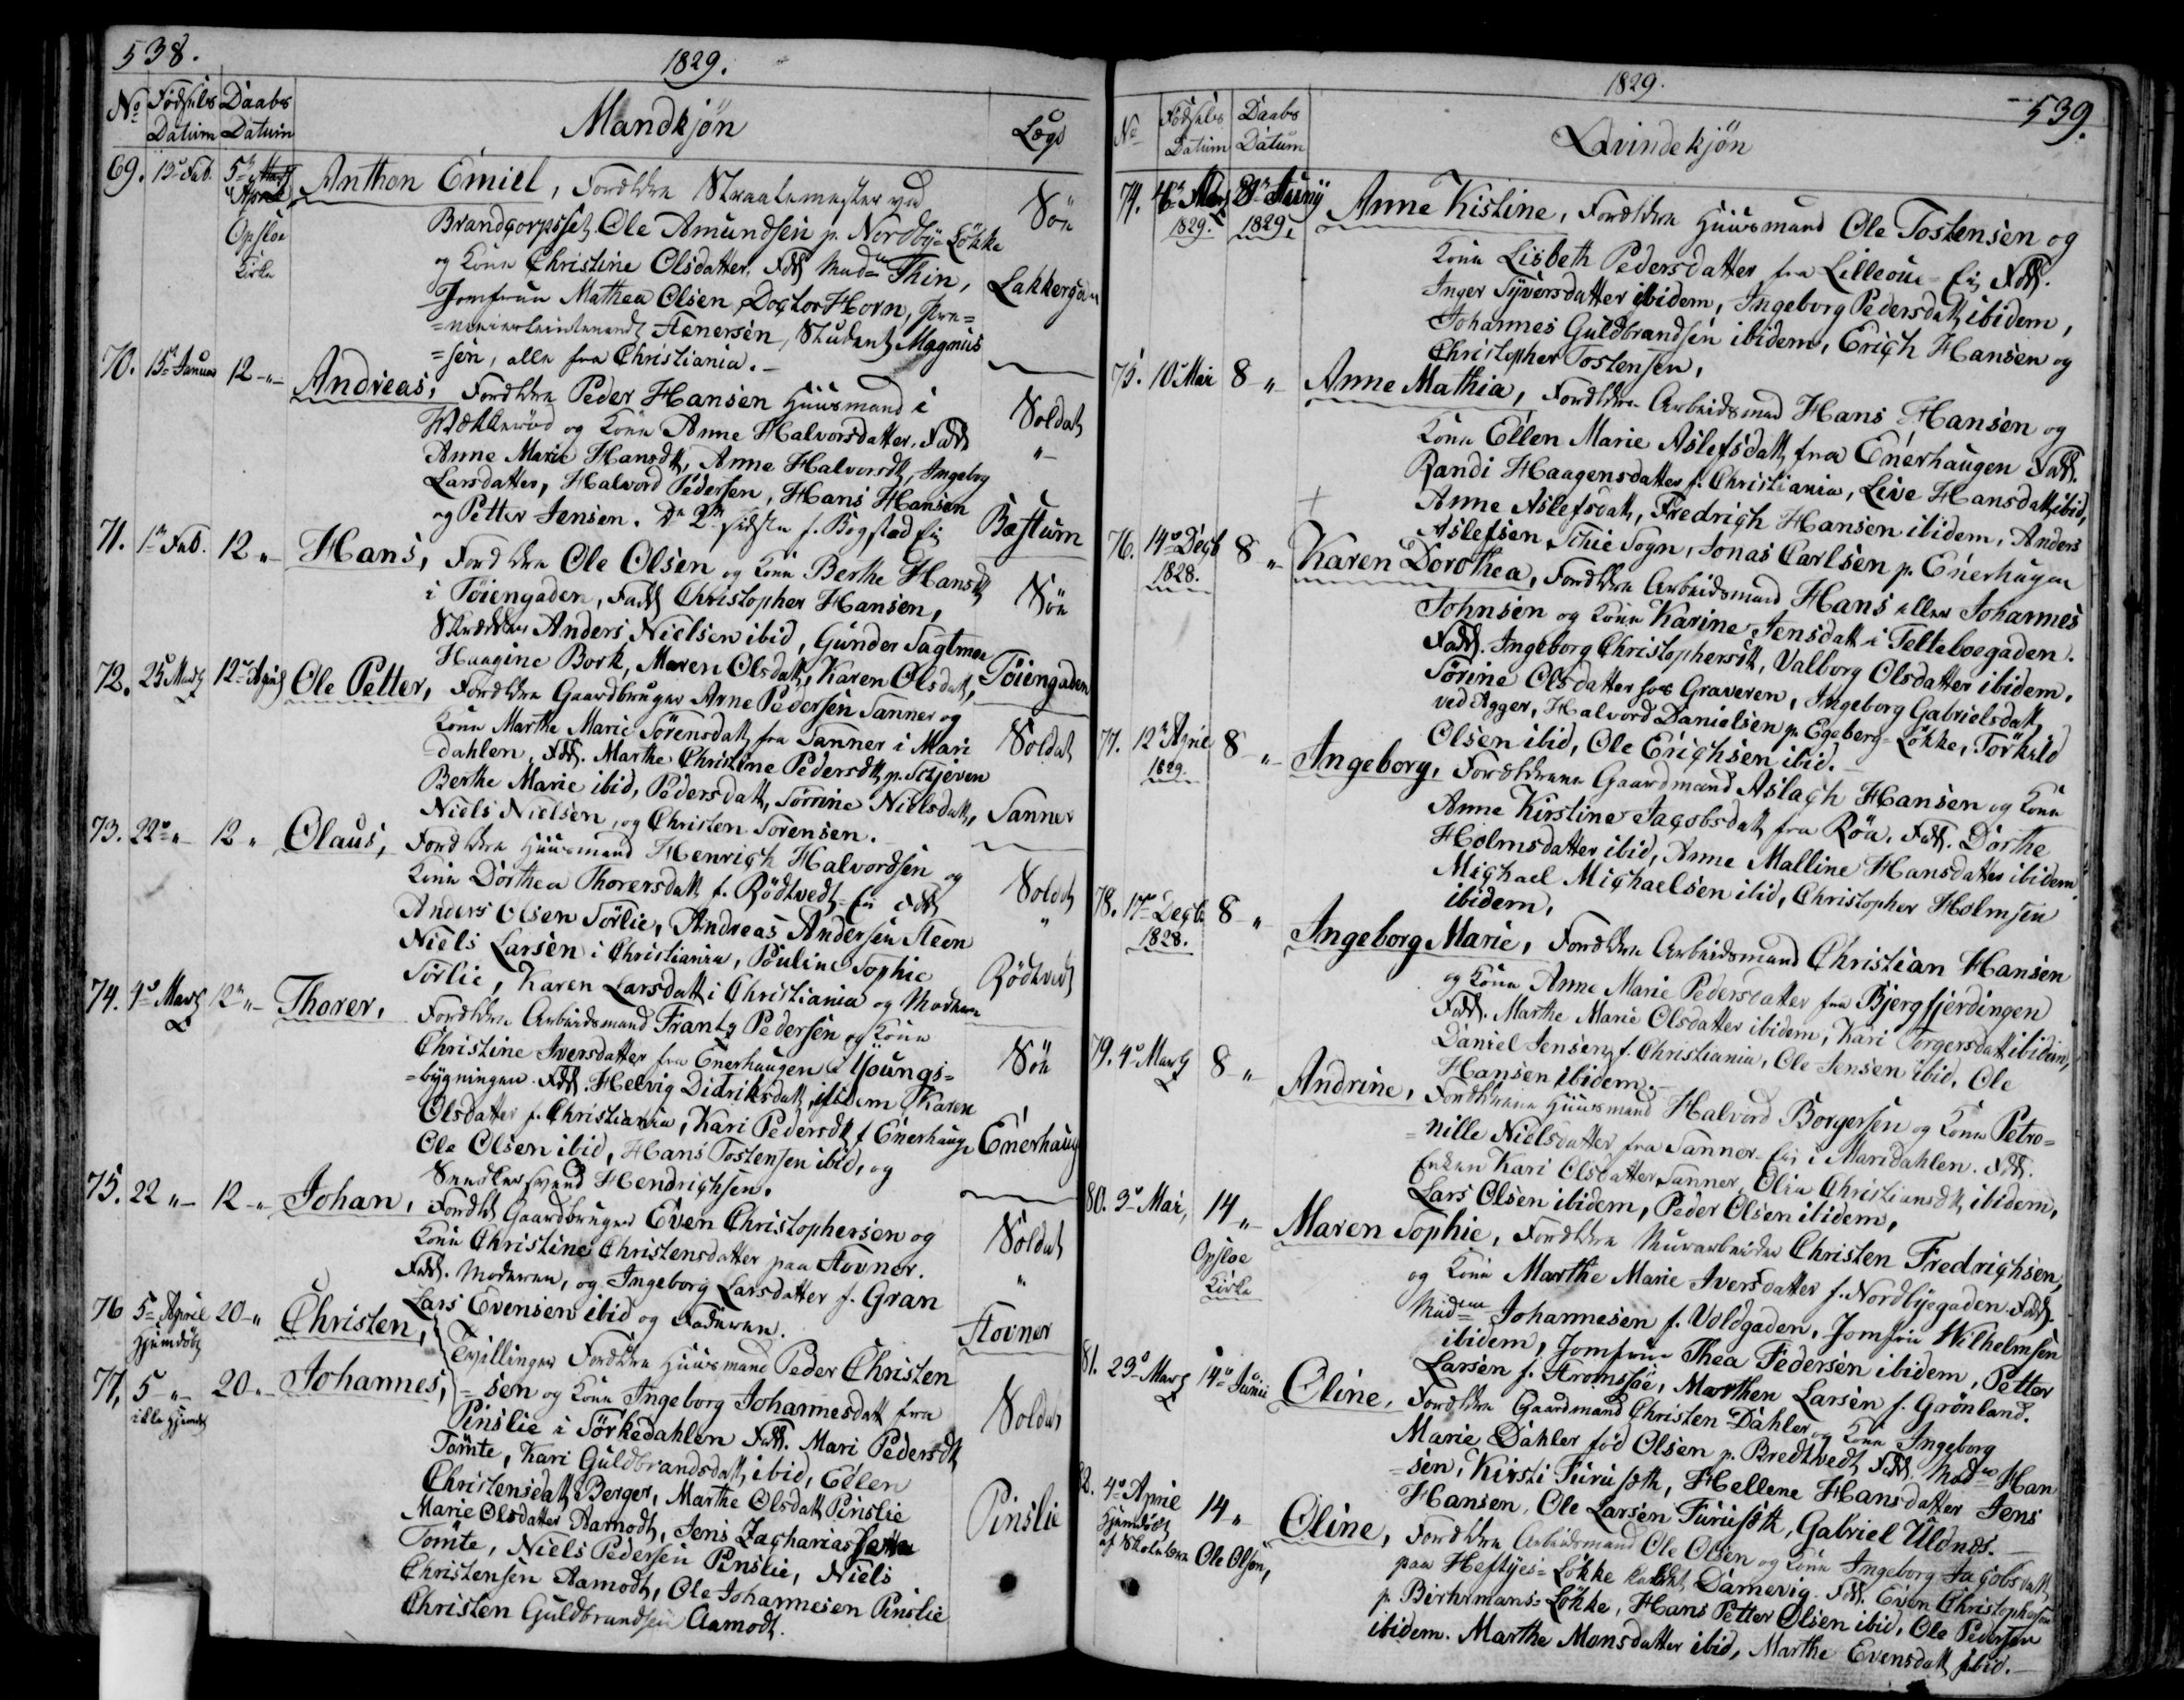 538.
1829.
No Fødsels Datum Daabs Datum
Mandkjön
Lægd
69. 13 Feb. 5 April Opsloe Kirke
Anthon Emiel, Forældre Straalemester ved
Brandcorpsset Ole Amundsen p. Nordbye Løkke
og Kone Christine Olsdatter. Fadd Madme Thin,
Jomfrue Mathea Olsen, Doctor Horn, Pre=
=mierleutenandt Stenersen, Student Magnus
=sen, alle fra Christiania.
Søn
Lakkergaden
70. 15 Januar 12 -"-
Andreas, Forældre Peder Hansen Huusmand i
Vækkerød og Kone Anne Halvorsdatter. Fadd
Anne Marie Hansdtt, Anne Halvorsdtt, Ingebog
Larsdatter, Halvord Pedersen, Hans Hansen
og Petter Jensen. De 2 sidste f. Bogstad Ei
Soldat
"
Bæstum
71. 1 Feb. 12 "-
Hans, Forældre Ole Olsen og Kone Berthe Hansdtt
i Töiengaden, Fadd Christopher Hansen,
Skrædder Anders Nielsen ibid, Gunder Sagtmoe
Haagine Bork, Maren Olsdatt, Karen Olsdatt,
Søn
Töiengaden
72. 25 Marts 12 April
Ole Petter, Forældre Gaardbruger Arne Pedersen Sanner og
Kone Marthe Marie Sörensdatt fra Sanner i Mari
dahlen. Fadd. Marthe Christine Pedersdtt p. Schjeven
Berthe Marie ibid, Pedersdatt, Sörrine Nielsdatt,
Niels Nielsen, og Christen Sorensen.
Soldat
Sanner
73. 22 "- 12 "
Olaus, Forældre Huusmand Henrich Halvordsen og
Kone Dorthea Thorersdatt f. Rödtvedt Ei Fadd
Anders Olsen Sörlie, Andreas Andersen Steen
Niels Larsen i Christiania, Pouline Sophie
Sörlie, Karen Larsdatt i Christiania og Moderen
Soldat
"
Rödtvedt
74. 4 Marts 12 "-
Thorer, Forældre Arbeidsmand Frantz Pedersen og Kone
Christine Iversdatter fra Enerhaugen i Youngs=
=bygningen. Fadd. Helvig Didriksdatt, ibidem Karen
Olsdatter f. Christiania, Kari Pedersdtt f Enerhauge
Ole Olsen ibid, Hans Tostensen ibid, og
Snedkersvend Hendrichsen.
Søn
Enerhaug
75. 22 "- 12 "-
Johan, Forældre Gaardbruger Even Christophersen og
Kone Christine Christensdatter paa Stovner.
Fadd. Moderen, og Ingeborg Larsdatter f. Gran
Lars Evensen ibid og Faderen.
Soldat
"
Stovner
76 5 April Hjemdöbt 20 "
Christen,
77, 5 -"- 20 "-
Johannes,
Tvillinger Forældre Huusmand Peder Christen
=sen og Kone Ingeborg Johannesdatt fra
Pinslie i Sörkedahlen Fadd. Mari Pedersdtt
Tömte, Kari Guldbrandsdatt ibid, Edlen
Christensdatt Berger, Marthe Olsdatt Pinslie
Marie Olsdatter Aamodt, Jens Zachariassen
Tomte, Niels Pedersen Pinslie, Niels
Christensen Aamodt, Ole Johannesen Pinslie
Christen Guldbrandsen Aamodt.
Soldat
Pinslie
1829.
539.
No Fødsels Datum Daabs Datum
Qvindekjön
74. 1829. Junij 1829.
Anne Kistine, Forældre Huusmand Ole Tostensen og
Kone Lisbeth Pedersdatter fra Lilleoue Ei Fadd.
Inger Syversdatter ibidem, Ingeborg Pedersdatt ibidem,
Johannes Guldbrandsen ibidem, Erich Hansen og
Christopher Tostensen,
75. 10 Mai 8 "
Anne Mathia, Forældre Arbeidsmand Hans Hansen og
Kone Ellen Marie Aslefsdatt fra Enerhaugen Fadd.
Randi Haagensdatter f. Christiania, Live Hansdatt ibid,
Anne Aslefsdatt, Fredrich Hansen ibidem, Anders
Aslefsen Schie Sogn, Jonas Carlsen p. Enerhugen
76. 14 Decb 1828. 8 "
+
Karen Dorothea, Forældre Arbeidsmand Hans eller Johannes
Johnsen og Kone Karine Jensdatt i Felteboegaden.
Fadd. Ingeborg Christophersdtt, Valborg Olsdatter ibidem,
Sörine Olsdatter hos Graveren, Ingeborg Gabrielsdatt
ved Agger, Halvord Danielsen p. Egeberg Løkke, Torkild
Olsen ibid, Ole Erichsen ibid.
77. 12 April 1829. 8 "
Ingeborg, Forældrene Gaardmand Aslach Hansen og Kone
Anne Kirstine Jacobsdatt fra Röa. Fadd. Dorthe
Holmsdatter ibid, Anne Malline Hansdatter ibidem
Michael Michaelsen ibid, Christopher Holmsen
ibidem,
78. 17 Decb 1828. 8 "
Ingeborg Marie, Forældre Arbeidsmand Christian Hansen
og Kone Anne Marie Pedersdatter fra Bjergfjerdingen
Fadd. Marthe Marie Olsdatter ibidem, Kari Torgersdatt ibidem,
Daniel Jensen f. Christiania, Ole Jensen ibid, Ole
Hansen ibidem.
79. 4 Marts 8 "
Andrine, Forældrene Huusmand Halvord Borgersen og Kone Petro=
=nille Nielsdatter fra Sanner Ei i Maridahlen. Fadd.
Enken Kari Olsdatter Sanner, Olia Christiansdtt ibidem,
Lars Olsen ibidem, Peder Olsen ibidem,
80. 3 Mai, 14 " Opsloe Kirke
Maren Sophie, Forældre Murarbeider Christen Fredrichsen,
og Kone Marthe Marie Iversdatter f. Nordbyegaden. Fadd.
Madme Johannesen f. Voldgaden, Jomfrue Wilhelmsen
ibidem, Jomfrue Thea Federsen ibidem, Petter
Larsen f. Stromsöe, Marthen Larsen f. Grönland.
81. 23 Marts 14 Junii
Eline, Forældre Gaardmand Christen Dahler og Kone Ingeborg
Marie Dahler fød Olsen p. Bredtvedt. Fadd. Madme Han
=sen, Kirsti Furusæth, Hellene Hansdatter Jens
Hansen, Ole Larsen Furusæth, Gabriel Uldnæs.
82. 4 April Hjemdöbt af Skolelærer Ole Olsen, 14 "
Oline, Forældre Arbeidsmand Ole Olsen og Kone Ingeborg Jacobsdatt
paa Heftyes Løkke kaldet Damevig. Fadd. Even Christophersen
p. Birhrmans Løkke, Hans Petter Olsen ibid, Ole Pedersen
ibidem. Marthe Monsdatter ibid, Marthe Evensdatt ibid.